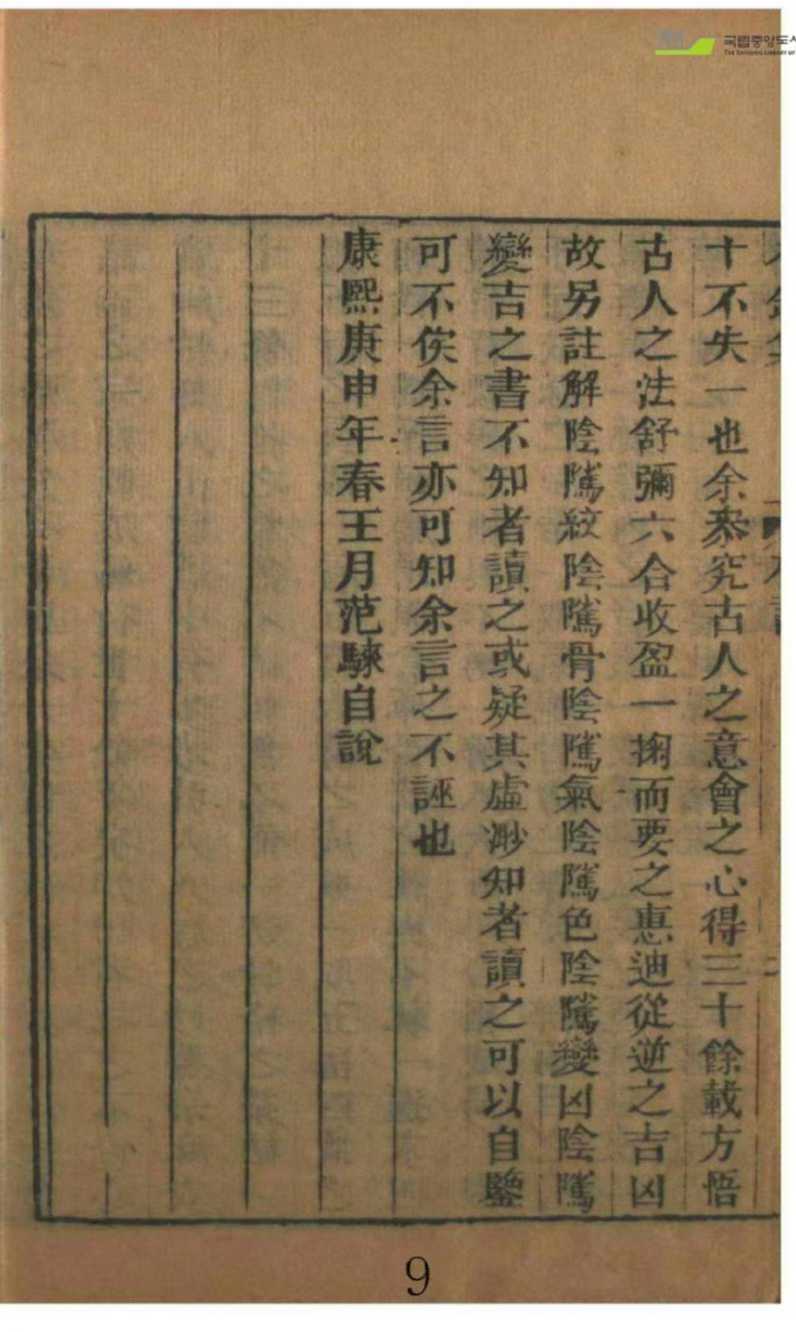 十不失一也余叅究古人之意會之心得三十餘載方悟
古人之法舒彌六合收盈一掬而要之惠迪從逆之吉凶
故另註解陰隲紋陰隲骨陰隲氣陰隲色陰隲變凶陰隲
變吉之書不知者讀之或疑其虛渺知者讀之可以自鑒
可不俟余言亦可知余言之不誣也
康熙庚申年春王月范騋自說
국립중앙도서
9